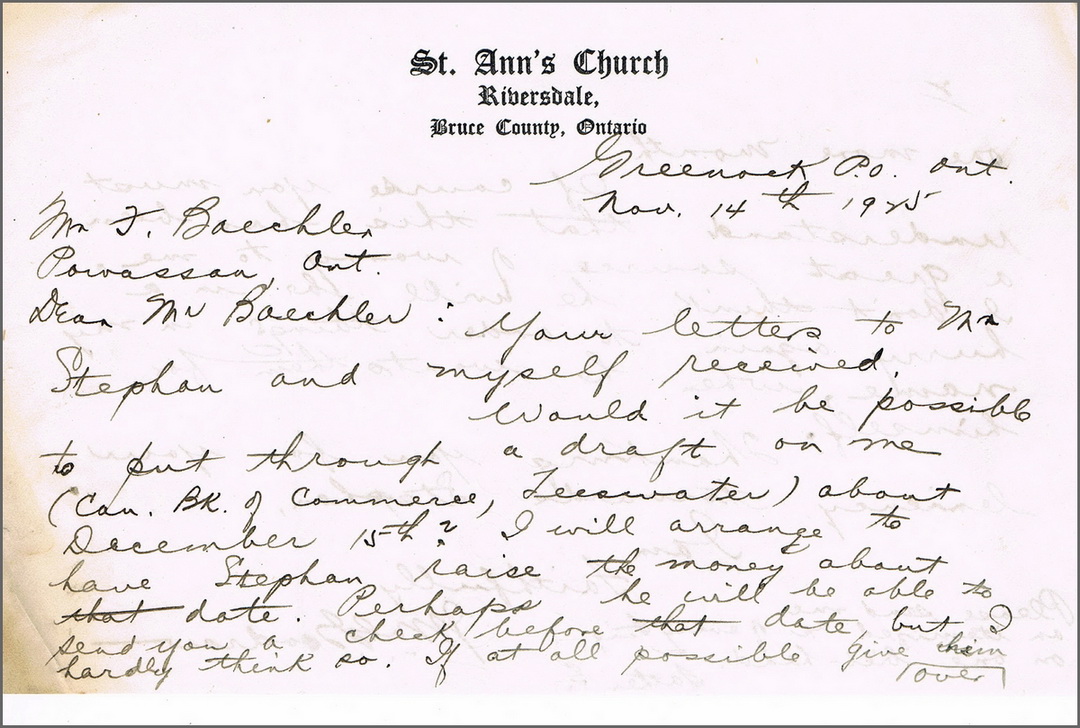 St. Ann's Church
Riversdale,
Bruce County, Ontario
Greenock P.O. Ont.
Nov. 14th 1925
Mr F. Baechler
Powassan, Ont.
Dear Mr Baechler :
Your letters to Mr
Stephan and myself received.
Would it be possible
to put through a draft on me
(Can. Bk. of Commerce, Teeswater) about
December 15th? I will arrange to
have Stephan raise the money about
that date. Perhaps he will be able to
send you a check before that date, but I
hardly think so. If at all possible give him
(over)